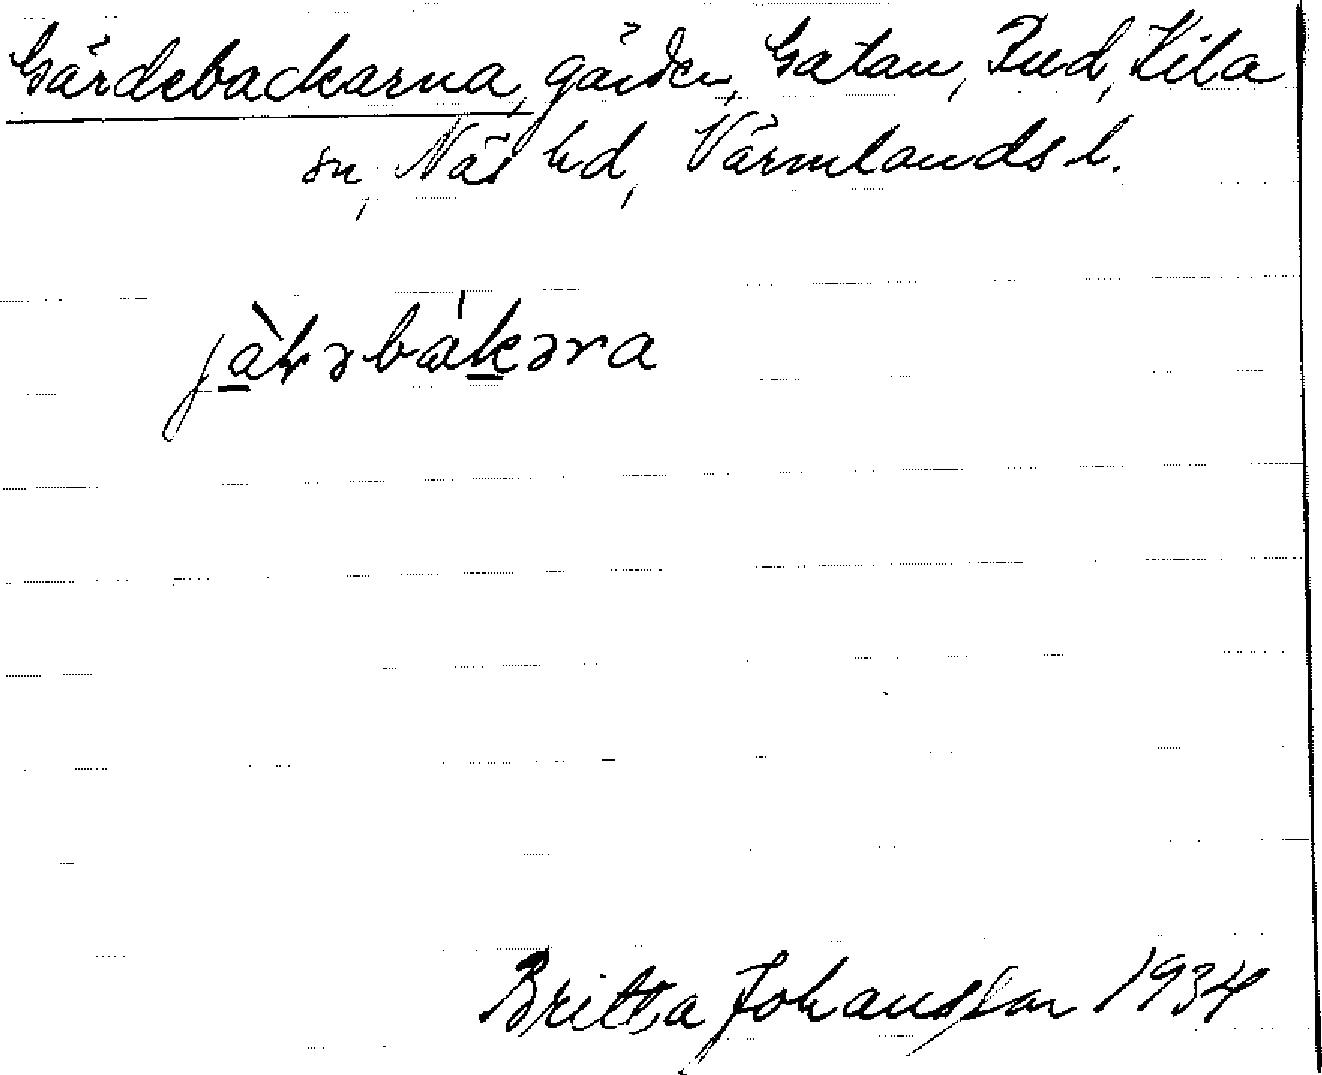 Gärdebackarna, gärden, Gatan, Rud, Kila
sn, Näs hd, Värmlands l.
Britta Johansson 1934